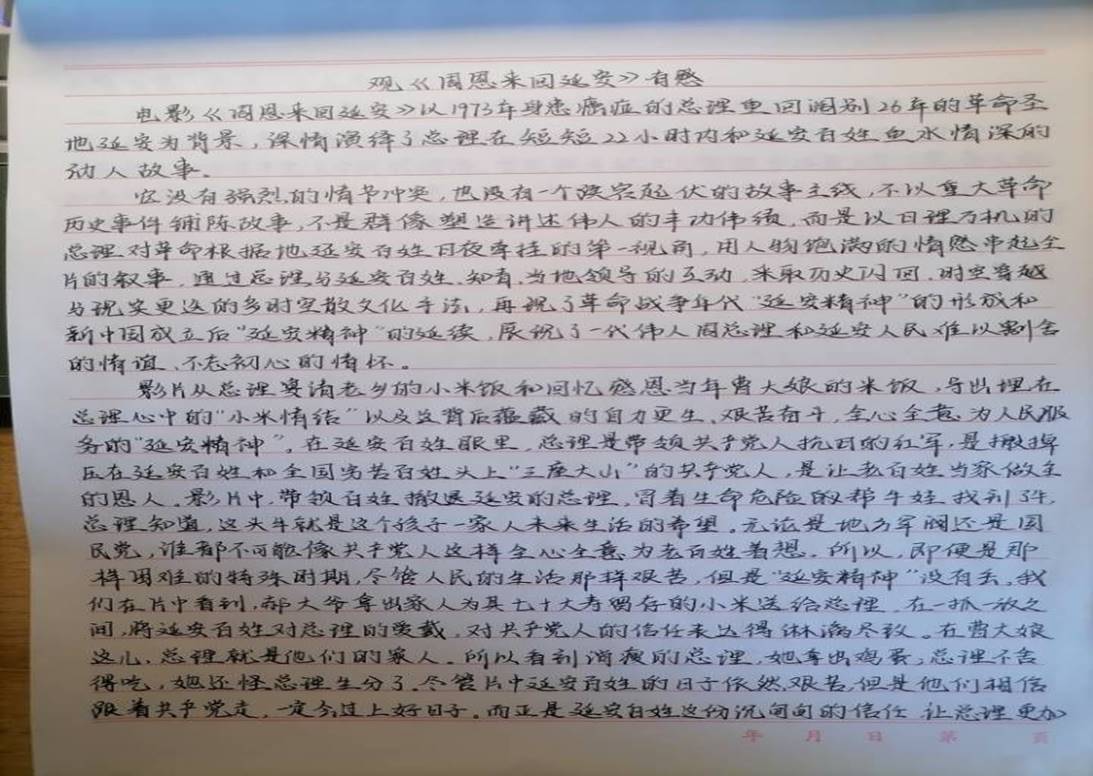 观《周恩来回延安》有感
电影《周恩来回延安》以1973年身患癌症的总理重回阔别26年的革命圣
地延安为背景，深情演绎了总理在短短22小时内和延安百姓血水情深的
动人故事。
它没有强烈的情节冲突，也没有一个跌宕起伏的故事主线，不以重大革命
历史事件铺陈故事，不是群像塑造讲述伟人的丰功伟绩，而是以日理万机的
总理对革命根据地延安百姓日夜牵挂的第一视角，用人物饱满的情感串起全
片的叙事，通过总理与延安百姓、知青、当地领导的互动，采取历史闪回、时空穿越
与现实更迭的多时空散文化手法，再现了革命战争年代“延安精神”的形成和
新中国成立后“延安精神”的延续，展现了一代伟人周总理和延安人民难以割舍
的情谊、不忘初心的情怀。
影片从总理宴请老乡的小米饭和回忆感恩当年曹大娘的米饭，导出埋在
总理心中的“小米情结”以及这背后蕴藏的自力更生、艰苦奋斗，全心全意为人民服
务的“延安精神”。在延安百姓眼里，总理是带领共产党人抗日的红军，是推掉
压在延安百姓和全国劳苦百姓头上“三座大山”的共产党人，是让老百姓当家做主
的恩人。影片中，带领百姓撤退延安的总理，冒着生命危险的帮牛娃找到了牛，
总理知道，这头牛就是这个孩子一家人未来生活的希望。无论是地方军阀还是国
民党，谁都不可能像共产党人这样全心全意为老百姓着想。所以，即便是那
样困难的特殊时期，尽管人民的生活那样艰苦，但是“延安精神”没有丢，我
们在片中看到，郝大爷拿出家人为其七十大寿留存的小米送给总理，在一抓一放之
间，将延安百姓对总理的爱戴，对共产党人的信任表达得淋漓尽致。在曹大娘
这儿，总理就是他们的家人。所以看到消瘦的总理，她拿出鸡蛋，总理不舍
得吃，她还怪总理生分了。尽管片中延安百姓的日子依然艰苦，但是他们相信
跟着共产党走，一定会过上好日子。而正是延安百姓这份沉甸甸的信任，让总理更加
年 月 日 第 页